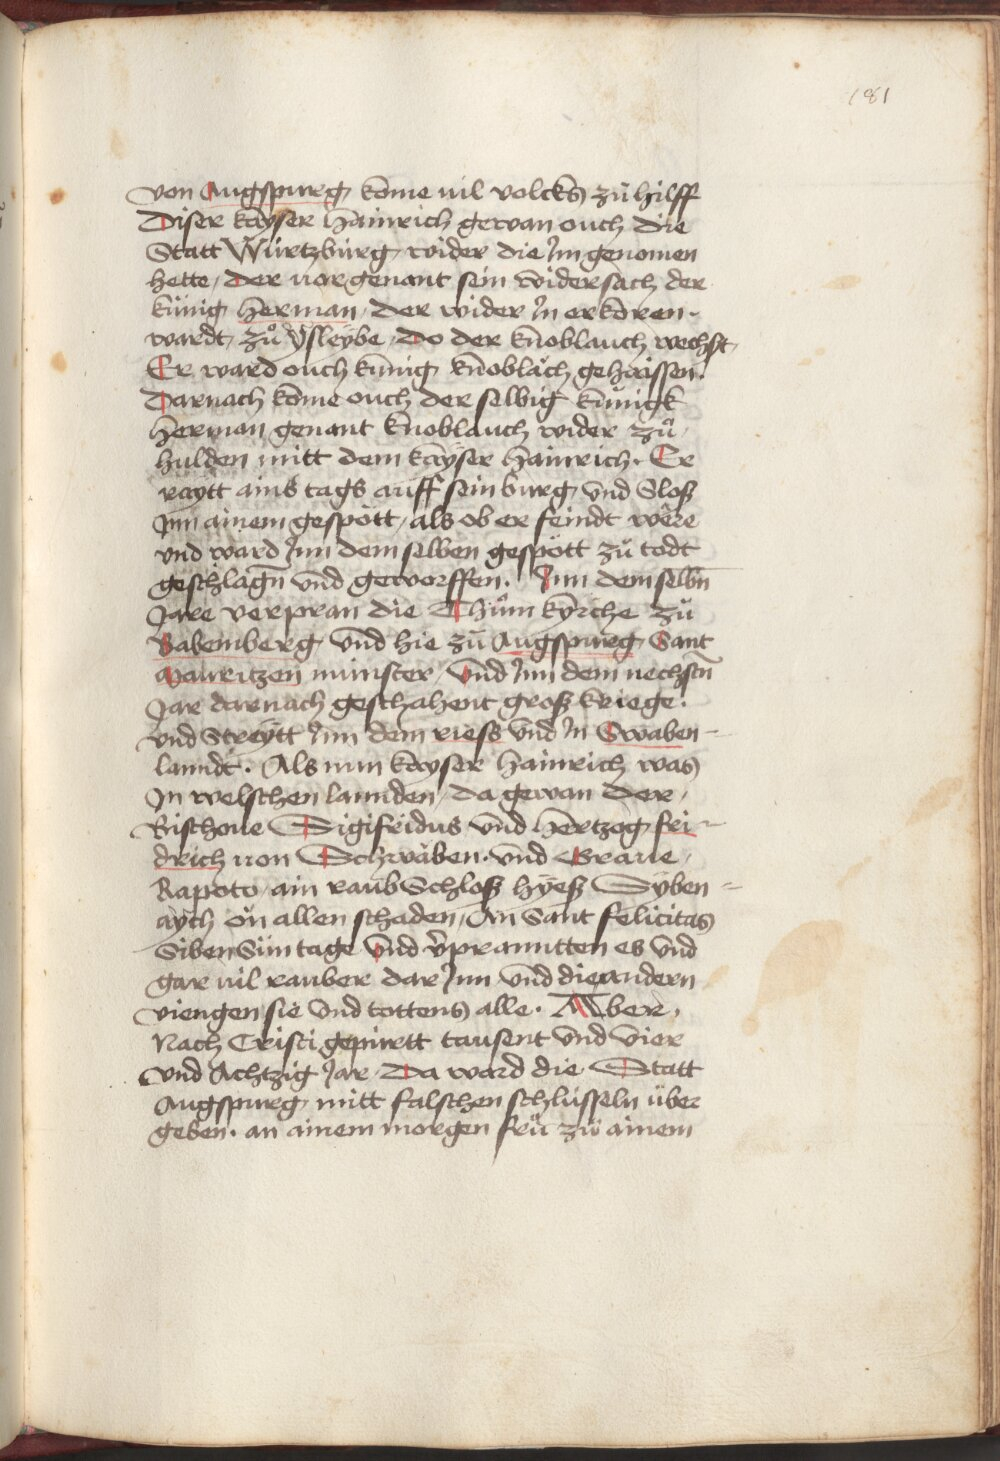 181
von Augspurg kome uil volcks zu hilff
Diser kayser Hainrich gewan ouch die
Statt Würtzburg, wider die Jm genomen
hette, Der uorgenant sein widersach der
künig Herman, der wider Jn erkoren.
wardt, zů Ysleybe, Do der knoblauch wechst,
Er ward ouch künig knobläch gehaissen.
Darnach kome ouch der selbig künigk
Herman genant knoblauch wider zů,
hulden mitt dem kayser Hainrich. Er
raytt ains tags auff sein burg, vnd Sloß
Jnn ainem gespött, als ob er feindt were
vnd ward Jnn dem selben gespött zů todt
geschlagn̄ vnd geworffen. Jnn dem selbn̄
Jare verpran die Thům kyrche zů
Babemberg, vnd hie zů Augspurg, Sant
Mauritzen münster, vnd Jnn dem nechstn̄
Jar darnach geschahent groß kriege.
vnd Streytt Jnn dem riess vnd Jn Swaben-
lanndt. Als nun kayser Hainrich was
Jn welschen lannden, da gewan der,
Bischoue Sigifridus vnd Hertzog fri-
drich uon Schwäben. vnd Graue,
Rapoto, ain raub Schloß hyeß Syben-
aych on allen schaden, An Sant felicitas
Siben Sün tage vnd v̄pranntten es vnd
gar uil rauber dar Jnn vnd die andern
viengen sie vnd tottens alle. Aber,
Nach Cristi gepurtt tausent vnd vier
vnd Achtzig Jar, Da ward die Statt
Augspurg, mitt falschen schlüsseln über
geben. an ainem morgen frů zů ainem